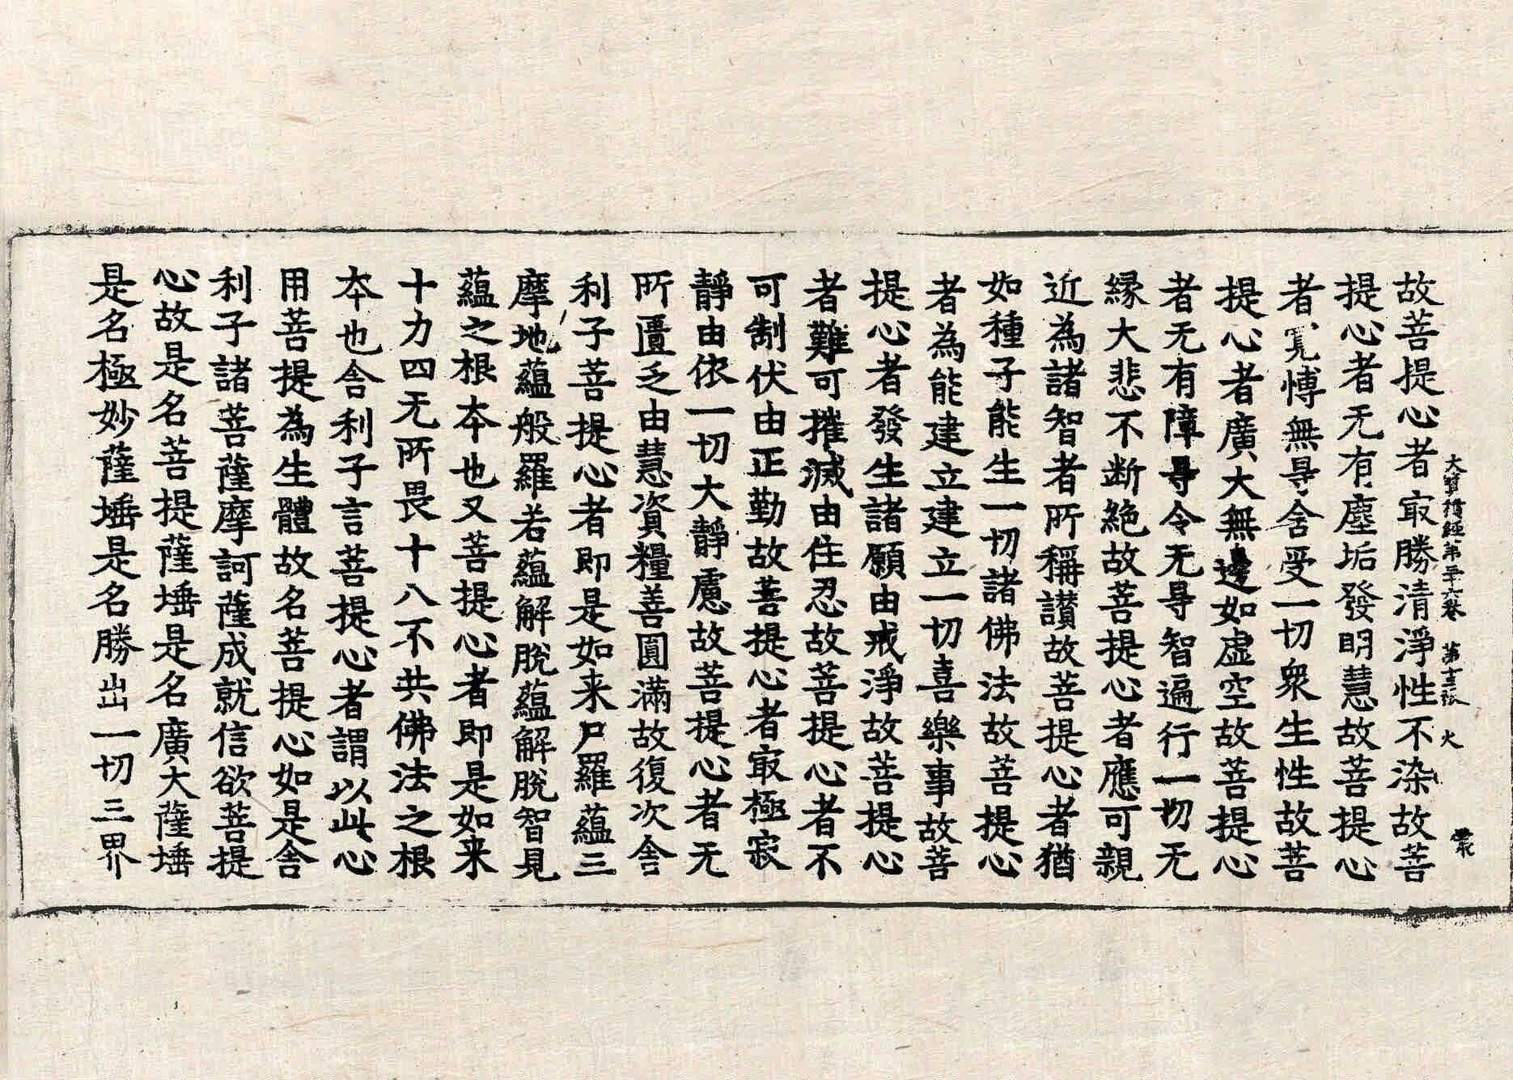 大寶積經第三十六卷　第十三張　火
故菩提心者㝡勝清淨性不染故菩
提心者无有塵垢發明慧故菩提心
者寬博無㝵含受一切衆生性故菩
提心者廣大無邊如虛空故菩提心
者无有障㝵令无㝵智遍行一切无
緣大悲不断絶故菩提心者應可親
近為諸智者所稱讃故菩提心者猶
如種子能生一切諸佛法故菩提心
者為能建立建立一切喜樂事故菩
提心者發生諸願由戒淨故菩提心
者難可摧滅由住忍故菩提心者不
可制伏由正勤故菩提心者㝡極寂
靜由依一切大靜慮故菩提心者无
所匱乏由慧資糧善圓滿故復次舍
利子菩提心者即是如来尸羅蘊三
摩地蘊般羅若蘊解脫蘊解脫智見
蘊之根本也又菩提心者即是如来
十力四无所畏十八不共佛法之根
本也舍利子言菩提心者謂以此心
用菩提為生體故名菩提心如是舍
利子諸菩薩摩訶薩成就信欲菩提
心故是名菩提薩埵是名廣大薩埵
是名極妙薩埵是名勝出一切三界